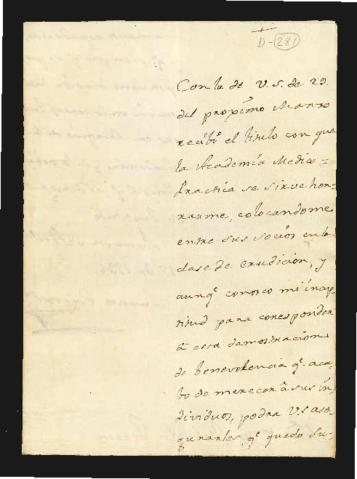 D-(281)
Con la de V.S. de 29.
del proximo Marzo
recibi el titulo con que
la Academia Medico-
Practica se sirve hon-
rarme, colocandome
entre sus socios en la
clase de erudicion, y
aunq.e conosco mi inap
titud para coresponder
à esta demostracion
de benevolencia q.e aca-
bo de merecer à sus in-
dividuos, podra V.S. ase-
gurarles, q.e quedo su-